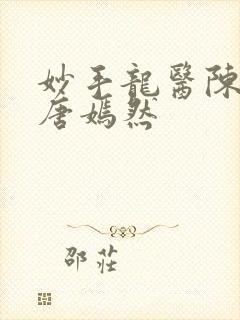 妙手龍醫陳
唐嫣然
邵莊